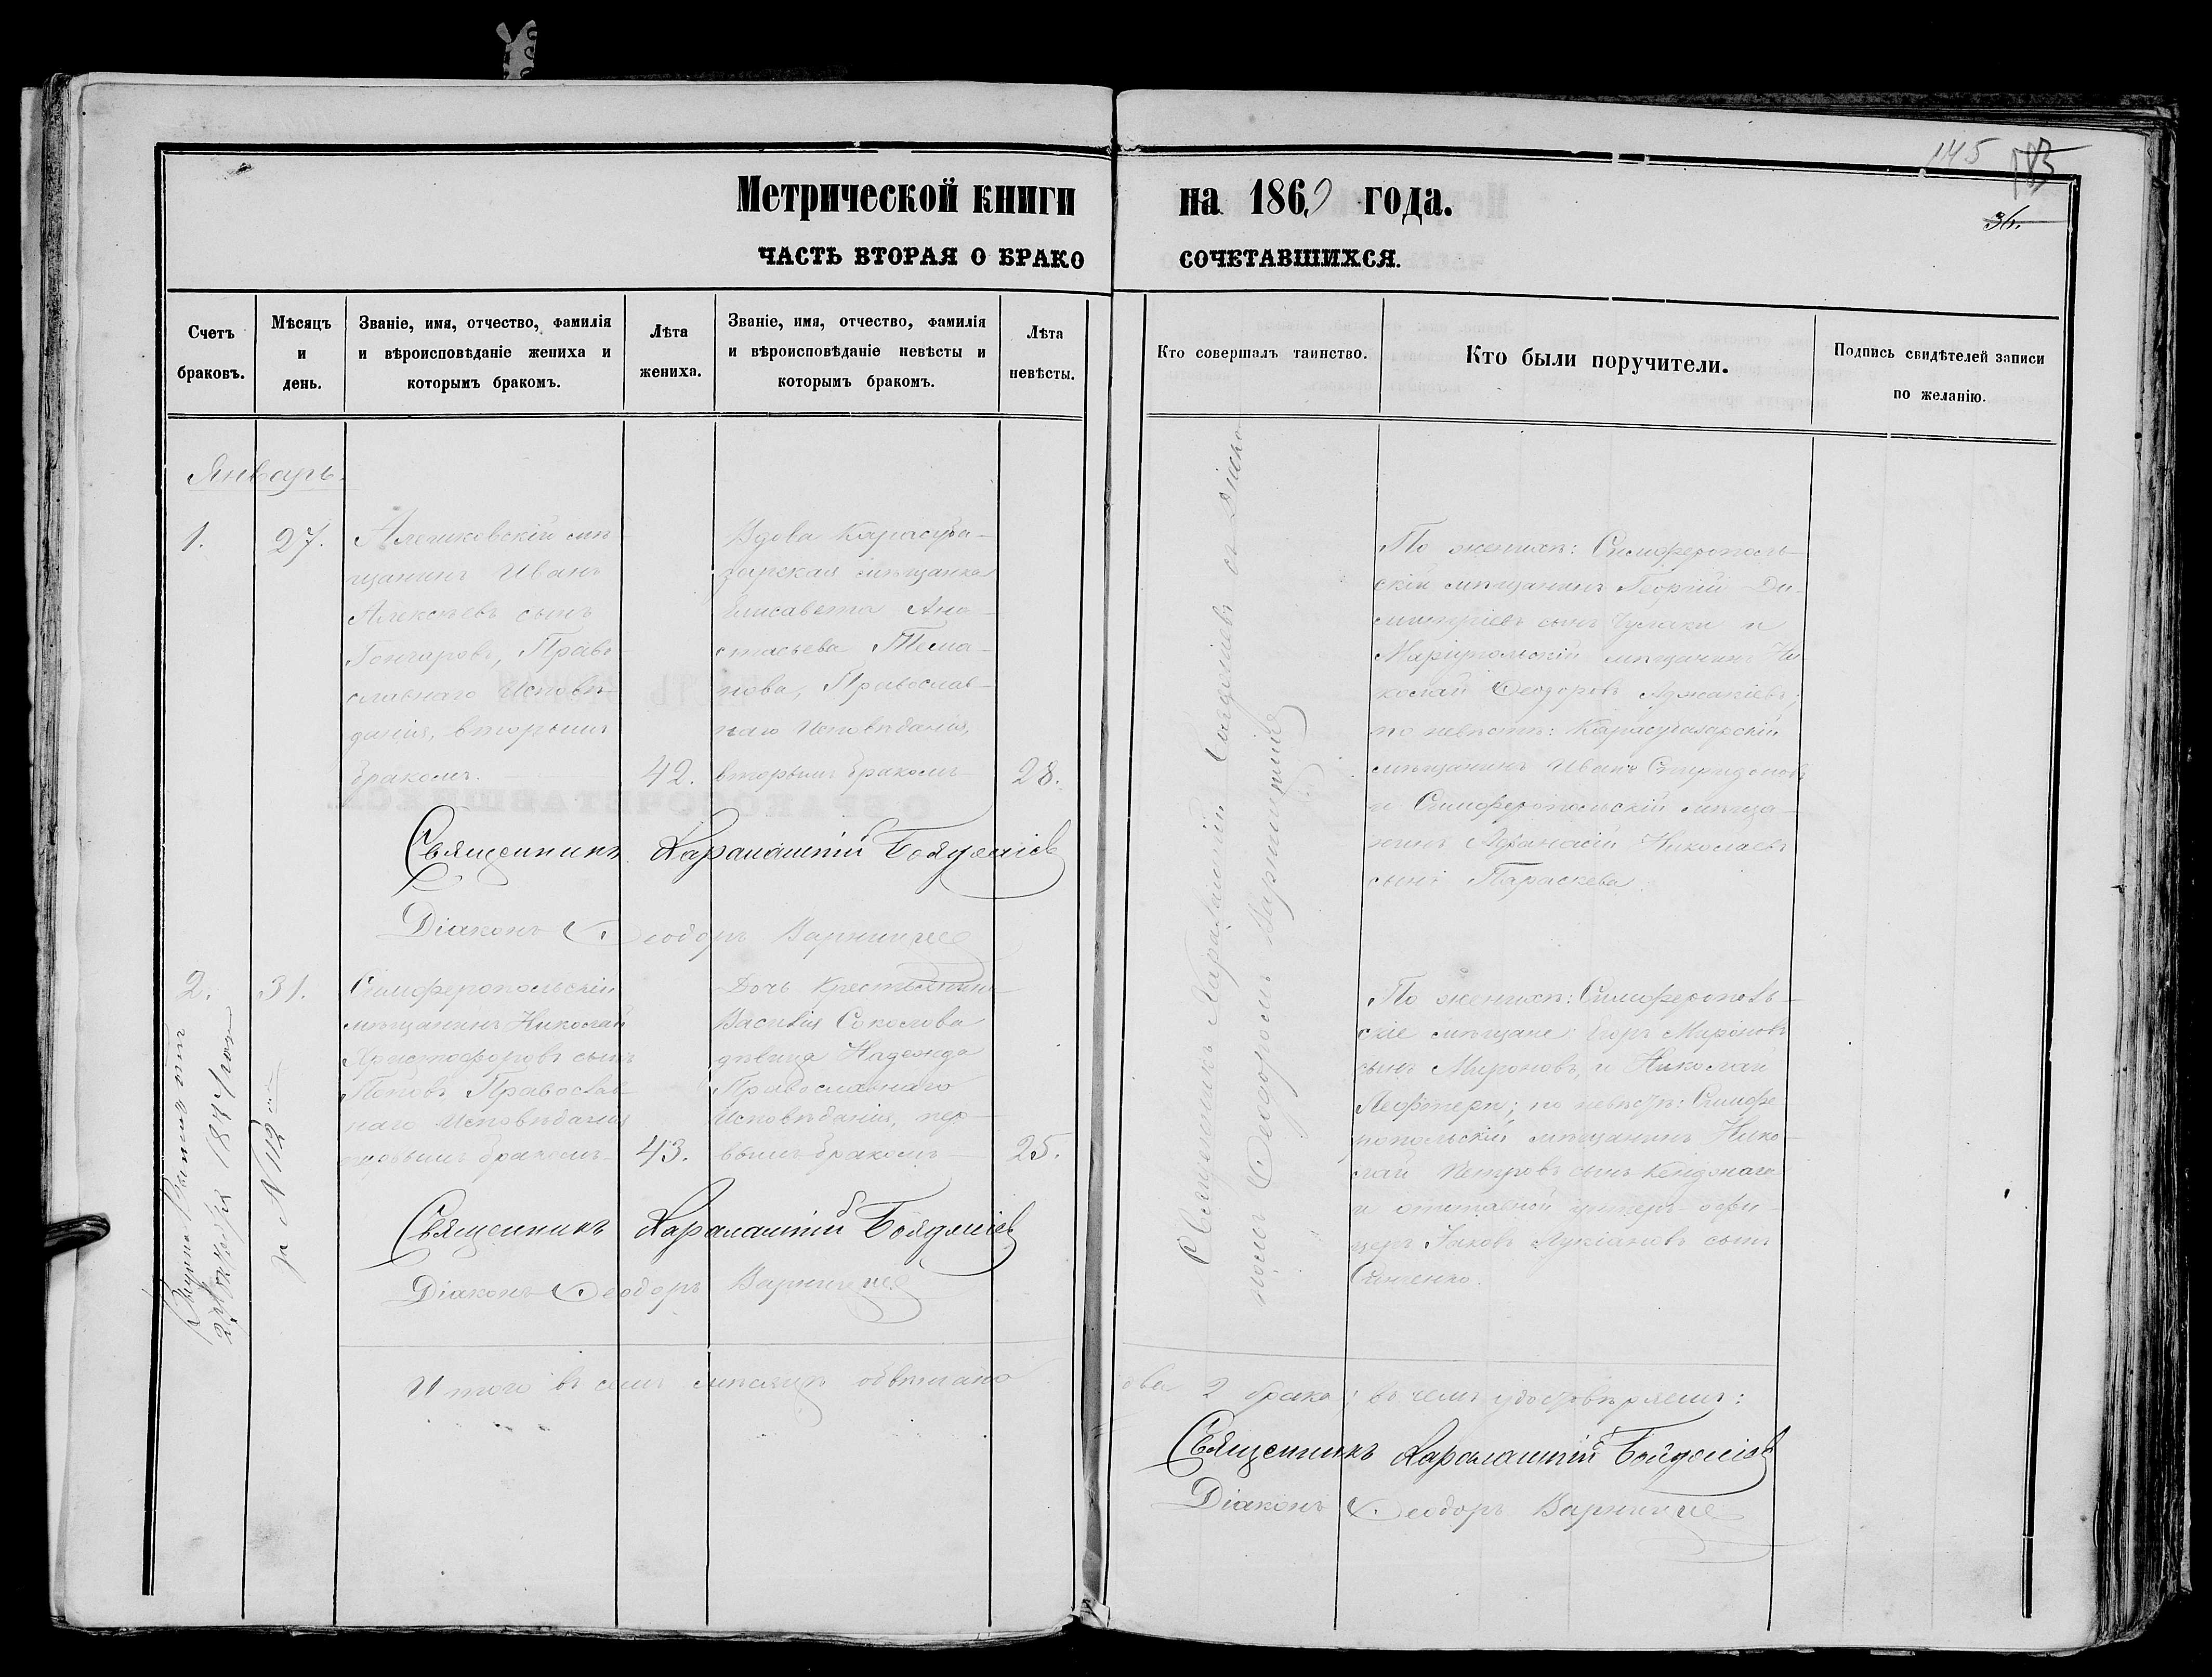 145
36.
Метрической книги на 1869 года.
ЧАСТЬ ВТОРАЯ О БРАКОСОЧЕТАВШИХСЯ.
Счетъ браковъ.
Мѣсяцъ и день.
Званіе, имя, отчество, фамилія и вѣроисповѣданіе жениха и которымъ бракомъ.
Лѣта жениха.
Званіе, имя, отчество, фамилія и вѣроисповѣданіе невѣсты и которымъ бракомъ.
Лѣта невѣсты.
Кто совершалъ таинство.
Кто были поручители.
Подпись свидѣтелей записи по желанію.
Январь.
1.
27.
Алешковскій мѣ-
щанинъ Иванъ
Алексѣевъ сынъ
Гончаровъ, Право-
славнаго Исповѣ-
данія, вторымъ
бракомъ.
42.
Вдова Карасуба-
зарская мѣщанка
Елисавета Ана-
стасьева
Православ-
наго Исповѣданія,
вторымъ бракомъ
28.
По женихѣ: Симферополь-
скій мѣщанинъ Георгій Ди-
митріевъ сынъ и
Маріупольскій мѣщанинъ Ни
колай Ѳеодоровъ
по невѣстѣ: Карасубазарскій
мѣщанинъ Иванъ Спиридоновъ
и Симферопольскій мѣща-
нинъ Аѳанасій Николаевъ
сынъ Параскева.
Священникъ Харалампій
Діаконъ Ѳеодоръ
2.
31.
Симферопольскій
мѣщанинъ Николай
Христофоровъ сынъ
Поповъ Православ-
наго Исповѣданія
бракомъ
43.
Дочь Крестьянина
Василія Соколова
дѣвица Надежда
Православнаго
Исповѣданія, пер-
вымъ бракомъ
25.
По женихѣ: Симферополь-
скіе мѣщане: Егоръ Мироновъ
сынъ Мироновъ, и Николай
по невѣстѣ: Симфе
ропольскій мѣщанинъ Нико-
лай Петровъ сынъ
и отставной унтеръ-офи-
церъ Яковъ Лукіановъ сынъ
Священникъ Харалампій
Діаконъ Ѳеодоръ
Священникъ Харалампій съ Діако-
номъ Ѳеодоромъ
за №112
Итого въ семъ мѣсяцѣ обвѣнчано
два 2 брака; въ чемъ удостовѣряемъ:
Священникъ Харалампій
Діаконъ Ѳеодоръ